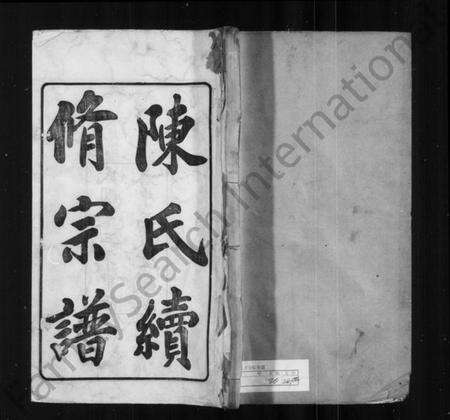 陳氏續
脩宗譜
FamilySearch International